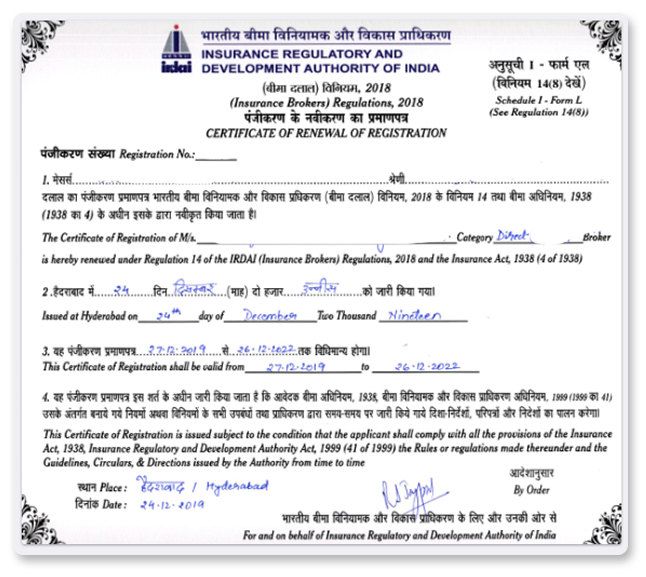 भारतीय बीमा विनियामक और विकास प्राधिकरण
irdai
INSURANCE REGULATORY AND
DEVELOPMENT AUTHORITY OF INDIA
अनुसूची I - फार्म एल
(विनियम 14(8) देखें)
Schedule I - Form L
(See Regulation 14(8))
(बीमा दलाल) विनियम, 2018
(Insurance Brokers) Regulations, 2018
पंजीकरण के नवीकरण का प्रमाणपत्र
CERTIFICATE OF RENEWAL OF REGISTRATION
पंजीकरण संख्या Registration No.:
1. मेसर्स श्रेणी
दलाल का पंजीकरण प्रमाणपत्र भारतीय बीमा विनियामक और विकास प्रधिकरण (बीमा दलाल) विनियम, 2018 के विनियम 14 तथा बीमा अधिनियम, 1938
(1938 का 4) के अधीन इसके द्वारा नवीकृत किया जाता है।
The Certificate of Registration of M/s. Category Direct Broker
is hereby renewed under Regulation 14 of the IRDAI (Insurance Brokers) Regulations, 2018 and the Insurance Act, 1938 (4 of 1938)
2 .हैदराबाद में 24 दिन दिसम्बर (माह) दो हजार उन्नीस को जारी किया गया।
Issued at Hyderabad on 24th day of December Two Thousand Nineteen
3. यह पंजीकरण प्रमाणपत्र 27-12-2019 से 26-12-2022 तक विधिमान्य होगा।
This Certificate of Registration shall be valid from 27-12-2019 to 26-12-2022
4. यह पंजीकरण प्रमाणपत्र इस शर्त के अधीन जारी किया जाता है कि आवेदक बीमा अधिनियम, 1938, बीमा विनियामक और विकास प्राधिकरण अधिनियम, 1999 (1999 का 41)
उसके अंतर्गत बनाये गये नियमों अथवा विनियमों के सभी उपबंधों तथा प्राधिकरण द्वारा समय-समय पर जारी किये गये दिशा-निर्देशों, परिपत्रों और निदेशों का पालन करेगा।
This Certificate of Registration is issued subject to the condition that the applicant shall comply with all the provisions of the Insurance
Act, 1938, Insurance Regulatory and Development Authority Act, 1999 (41 of 1999) the Rules or regulations made thereunder and the
Guidelines, Circulars, & Directions issued by the Authority from time to time
आदेशानुसार
स्थान Place : हैदराबाद / Hyderabad
By Order
दिनांक Date : 24-12-2019
भारतीय बीमा विनियामक और विकास प्राधिकरण के लिए और उनकी ओर से
For and on behalf of Insurance Regulatory and Development Authority of India